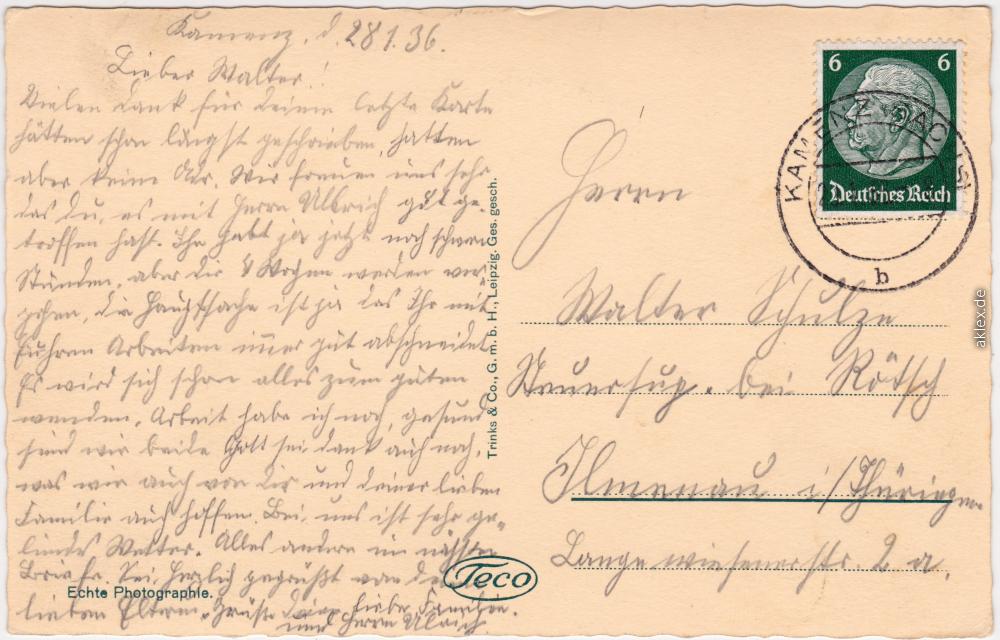 Kamenz, d. 28 1. 36.
Lieber Walter!
Vielen Dank für deine letzte Karte
hätten schon längst geschrieben, hatten
aber keine Adr. Wir freuen uns sehr
das du, es mit Herrn Ullrich gut ge-
troffen hast. Ihr habt ja jetzt noch schwere
Stunden, aber die 8 Wochen werden ver-
gehen, die Hauptsache ist ja das Ihr mit
Euhren Arbeiten immer gut abschneidet
Es wird sich schon alles zum guten
wenden. Arbeit habe ich noch, gesund
sind wir beide Gott sei dank auch noch,
was wir auch von dir und deiner lieben
Familie auch hoffen. Bei uns ist sehr ge-
lindes Wetter. Alles andere im nächsten
Briefe. Sei herzlich gegrüßt von de
lieben Eltern. Grüße deine liebe Familie.
und Herrn Ulrich
Echte Photographie.
Teco
Trinks & Co., G. m. b. H., Leipzig. Ges. gesch.
6 6
Deutsches Reich
KAMENZ (SACHS)
b
Herrn
Walter Schulze
Steuersup. bei Rötsch
Ilmenau i/Thüringen
Langewiesenerstr. 2 a.
aklex.de